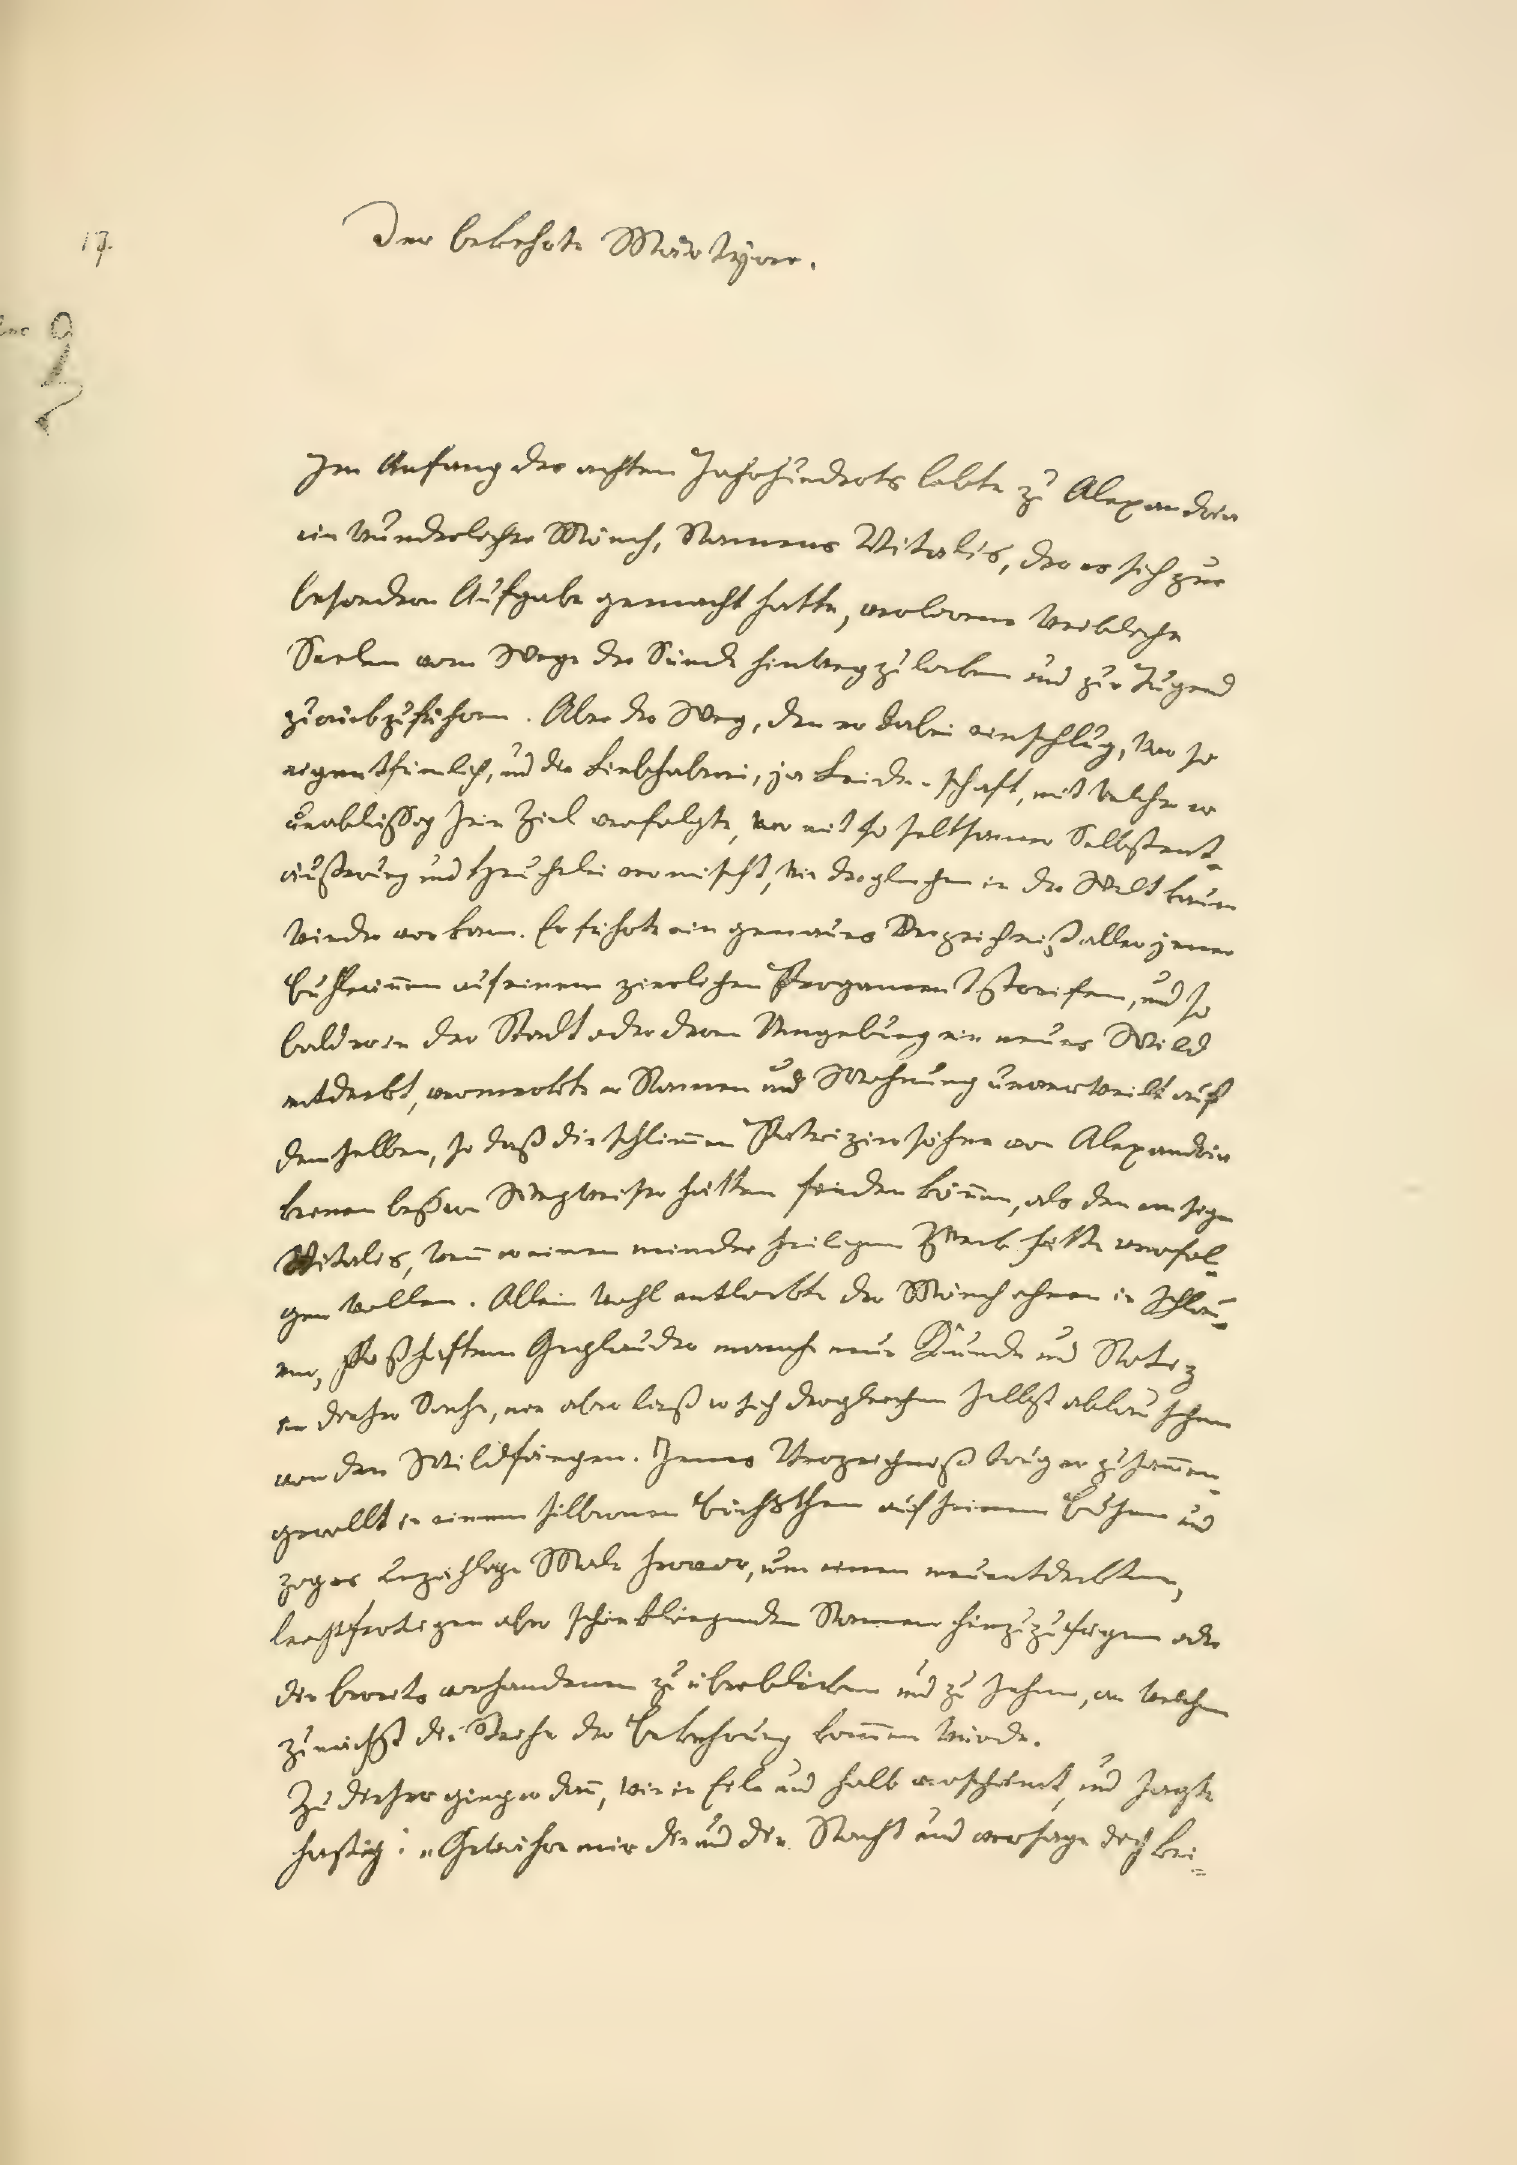 17.
Der bekehrte Märtyrer.
Im Anfang des achten Jahrhunderts lebte zu Alexandria
ein wunderlicher Mönch, Namens Vitalis, der es sich zur
besondern Aufgabe gemacht hatte, verlorene weibliche
Seelen vom Wege der Sünde hinwegzulocken und zur Tugend
zurückzuführen. Aber der Weg, den er dabei einschlug, war so
eigenthümlich, und die Liebhaberei, ja Leidenschaft, mit welcher er
unabläßig sein Ziel verfolgte, war mit so seltsamer Selbstent-
äußerung und Heuchelei vermischt, wie dergleichen in der Welt kaum
wieder vorkam. Er führte ein genaues Verzeichniß aller jener
Buhlerinnen auf einem zierlichen Pergamentstreifen, und so
bald er in der Stadt oder deren Umgebung ein neues Wild
entdeckt, vermerkte er Namen und Wohnung unverweilt auf
demselben, so daß die schlimmen Patriziersöhne von Alexandria
keinen beßern Wegweiser hätten finden können, als den emsigen
Vitalis, wenn er einen minder heiligen Zweck hätte verfol-
gen wollen. Allein wohl entlockte der Mönch ihnen in schlau-
em, spaßhaftem Geplauder manche neue Kunde und Notiz
in dieser Sache, nie aber ließ er sich dergleichen selbst ablauschen
von den Wildfängen. Jenes Verzeichniß trug er zusammen-
gerollt in einem silbernen Büchschen auf seinem Busen und
zog es unzählige Male hervor, um einen neuentdeckten,
leichtfertigen aber schön klingenden Namen hinzuzufügen oder
die bereits vorhandenen zu überblicken und zu sehen, an welchen
zunächst die Reihe der Bekehrung kommen würde.
Zu dieser ging er dann, wie in Eile und halb verschämt, und sagte
hastig: „Gewähre mir die und die Nacht und versage dich kei-